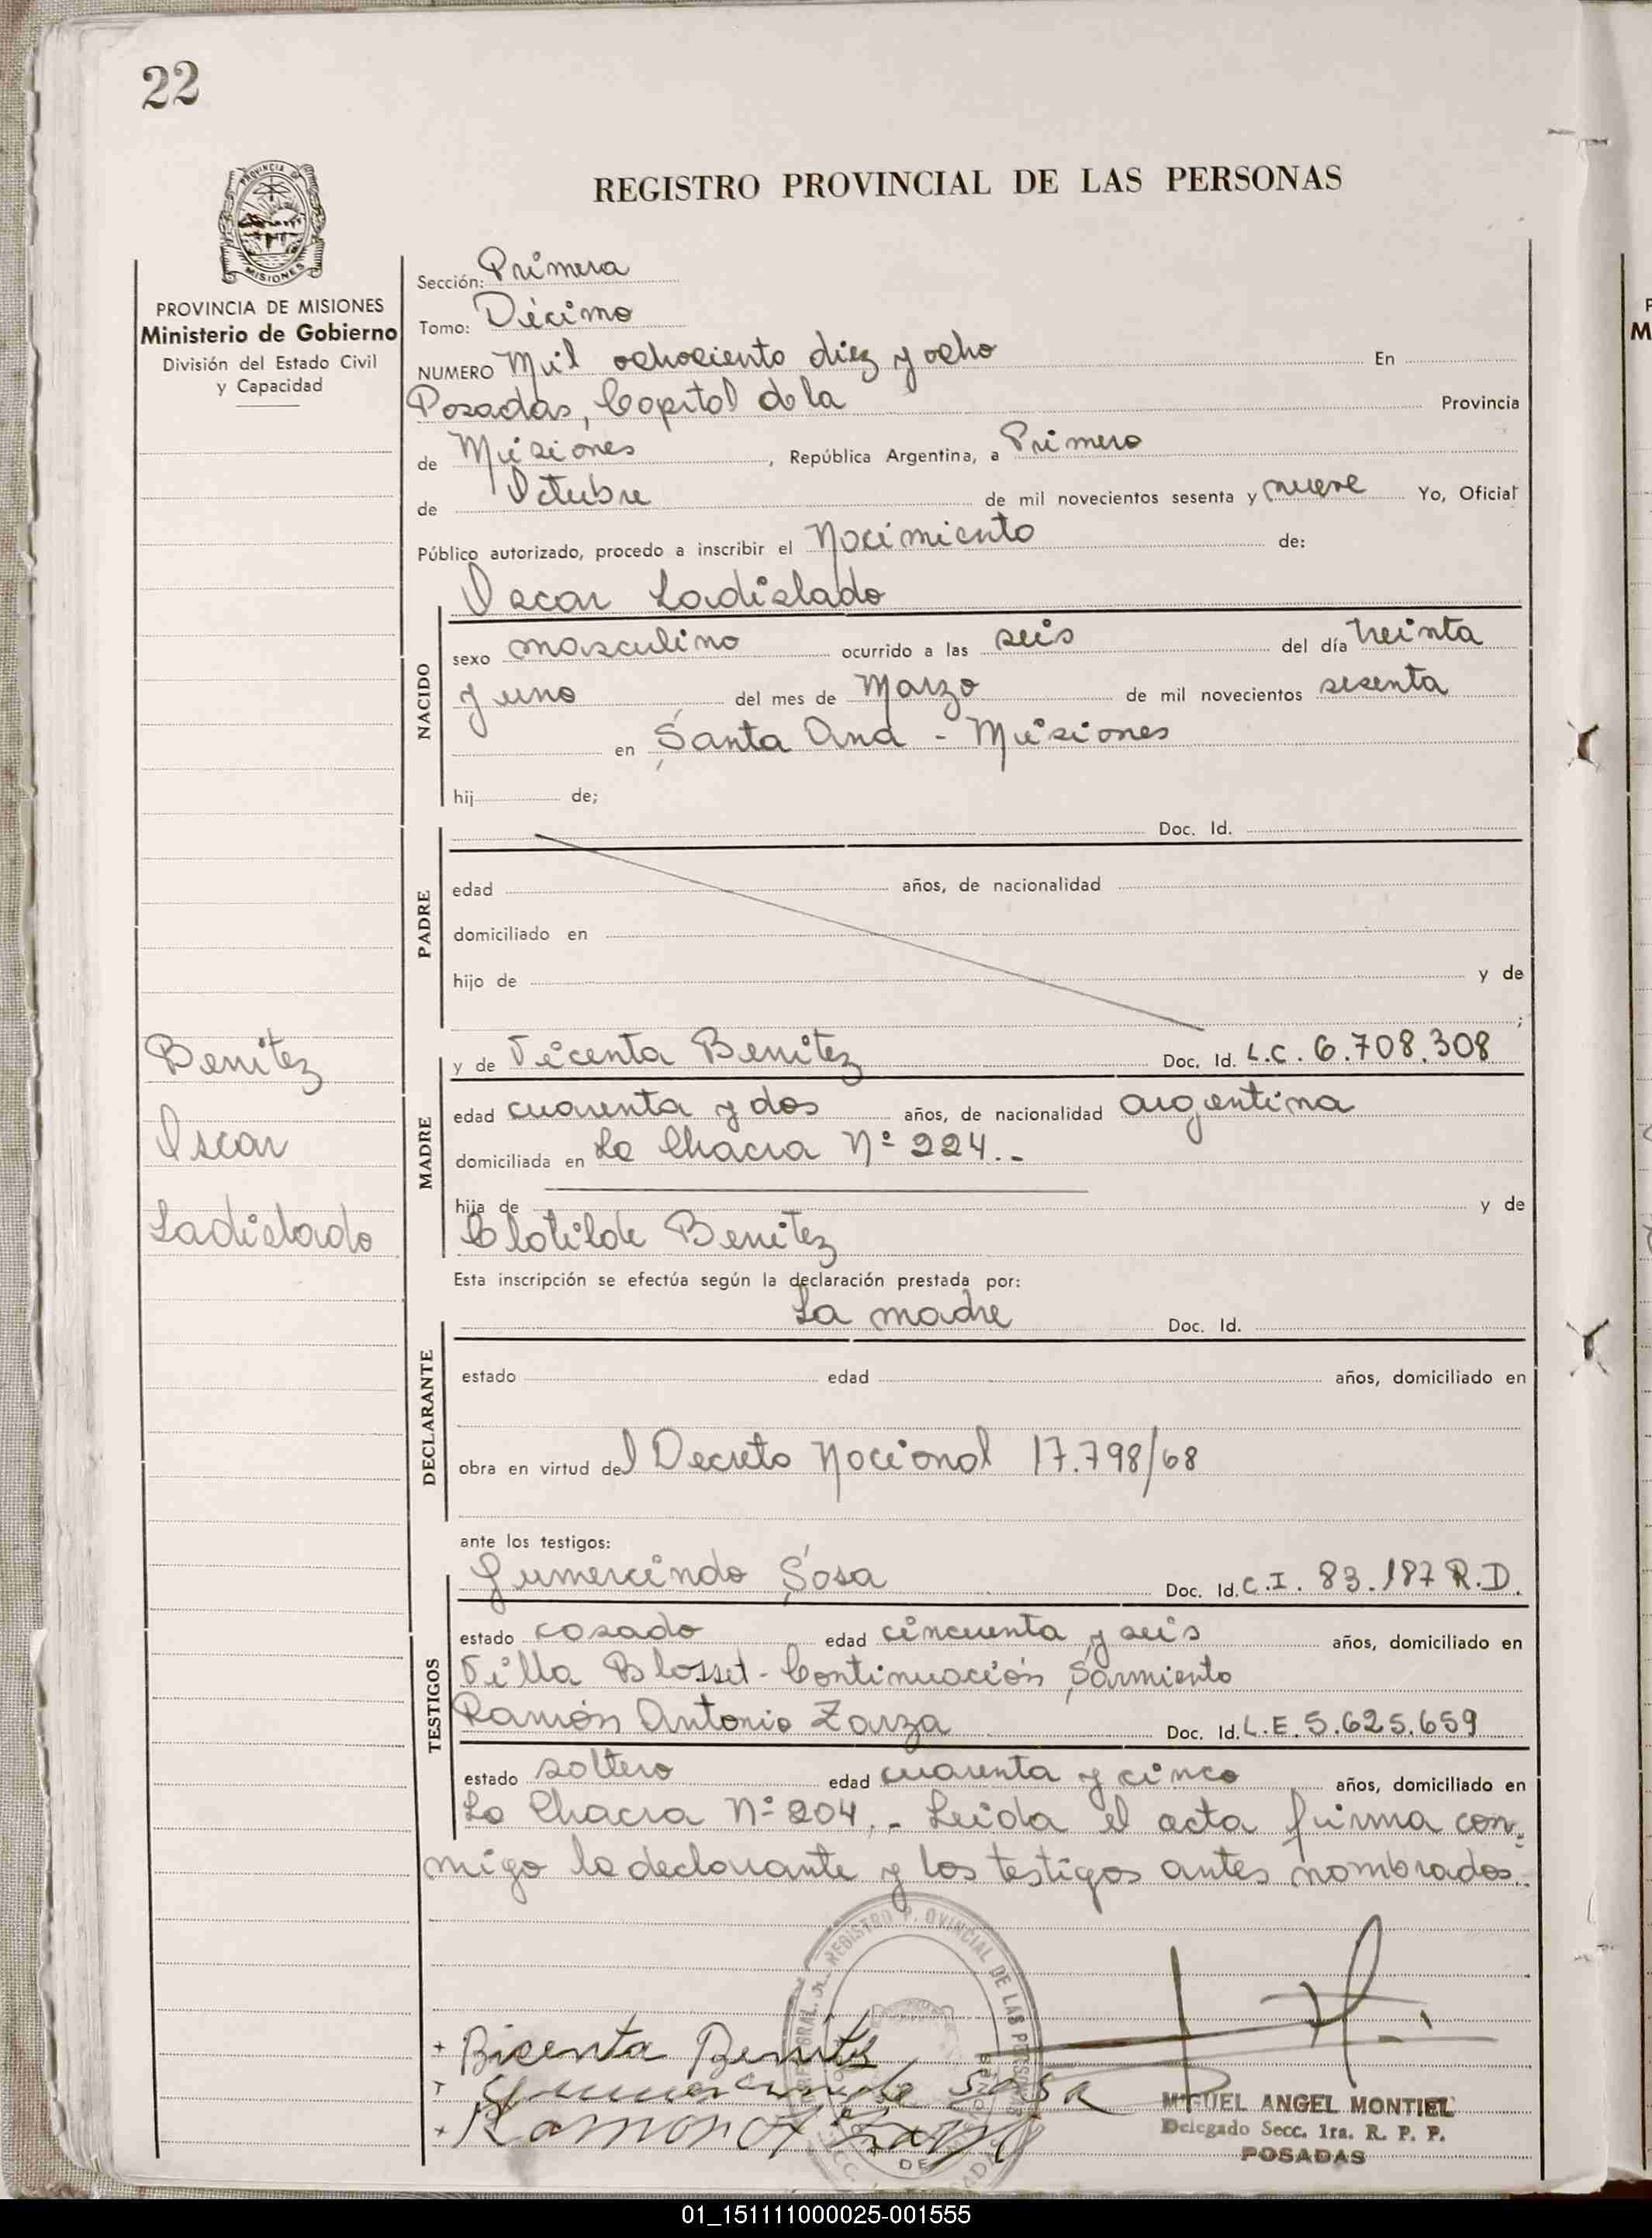 22
PROVINCIA DE
MISIONES
REGISTRO PROVINCIAL DE LAS PERSONAS
PROVINCIA DE MISIONES
Ministerio de Gobierno
División del Estado Civil
y Capacidad
Sección: Primera
Tomo: Décimo
NUMERO Mil ochociento diez y ocho En
Posadas, Capital de la Provincia
de Misiones, República Argentina, a Primero
de Octubre de mil novecientos sesenta y nueve Yo, Oficial
Público autorizado, procedo a inscribir el Nacimiento de:
Oscar Ladislado
NACIDO
sexo masculino ocurrido a las seis del día treinta
y uno del mes de Marzo de mil novecientos sesenta
en Santa Ana - Misiones
hij de;
PADRE
Doc. Id.
edad años, de nacionalidad
domiciliado en
hijo de y de
;
Benitez
Oscar
Ladislado
MADRE
y de Vicenta Benitez Doc. Id. L.C. 6.708.308
edad cuarenta y dos años, de nacionalidad argentina
domiciliada en La Chacra Nº 224.-
hija de y de
Clotilde Benitez
Esta inscripción se efectúa según la declaración prestada por:
DECLARANTE
La madre Doc. Id.
estado edad años, domiciliado en
obra en virtud del Decreto Nacional 17.798/68
ante los testigos:
TESTIGOS
Gumercindo Sosa Doc. Id. C.I. 83.187 R.D.
estado casado edad cincuenta y seis años, domiciliado en
Villa Blosset - Continuación Sarmiento
Ramón Antonio Zarza Doc. Id. L.E. 5.625.659
estado soltero edad cuarenta y cinco años, domiciliado en
La Chacra Nº 204.- Leida el acta firma con-
migo la declarante y los testigos antes nombrados.
REGISTRO P. OVINCIAL DE LAS PERSONAS
+ Bicenta Benites
+ Gumercindo Sosa
+ Ramon A Zarza
MIGUEL ANGEL MONTIEL
Delegado Secc. 1ra. R. P. P.
POSADAS
01_151111000025-001555